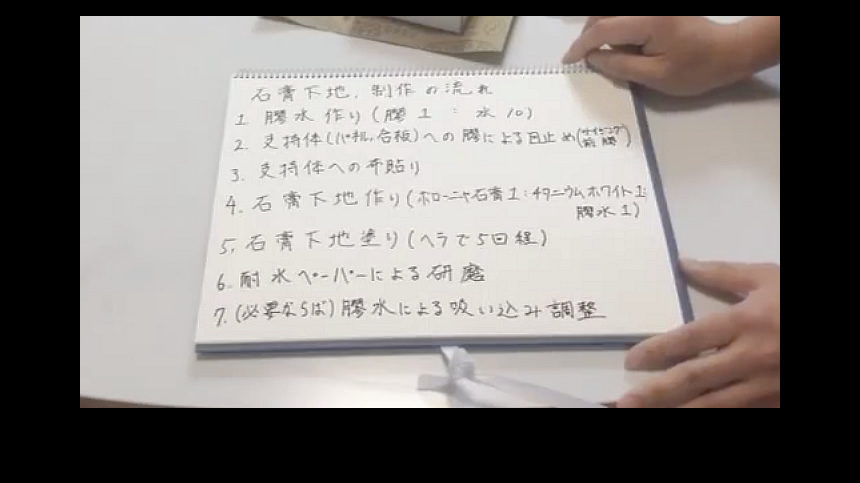 石膏下地、制作の流れ
1. 膠水作り(膠1:水10)
2. 支持体(パネル,合板)への膠による目止め(サイジング 前膠)
3. 支持体への布貼り
4. 石膏下地作り(ボローニャ石膏1:チタニウムホワイト1:
膠水1)
5. 石膏下地塗り(ヘラで5回程)
6. 耐水ペーパーによる研磨
7. (必要ならば)膠水による吸い込み調整